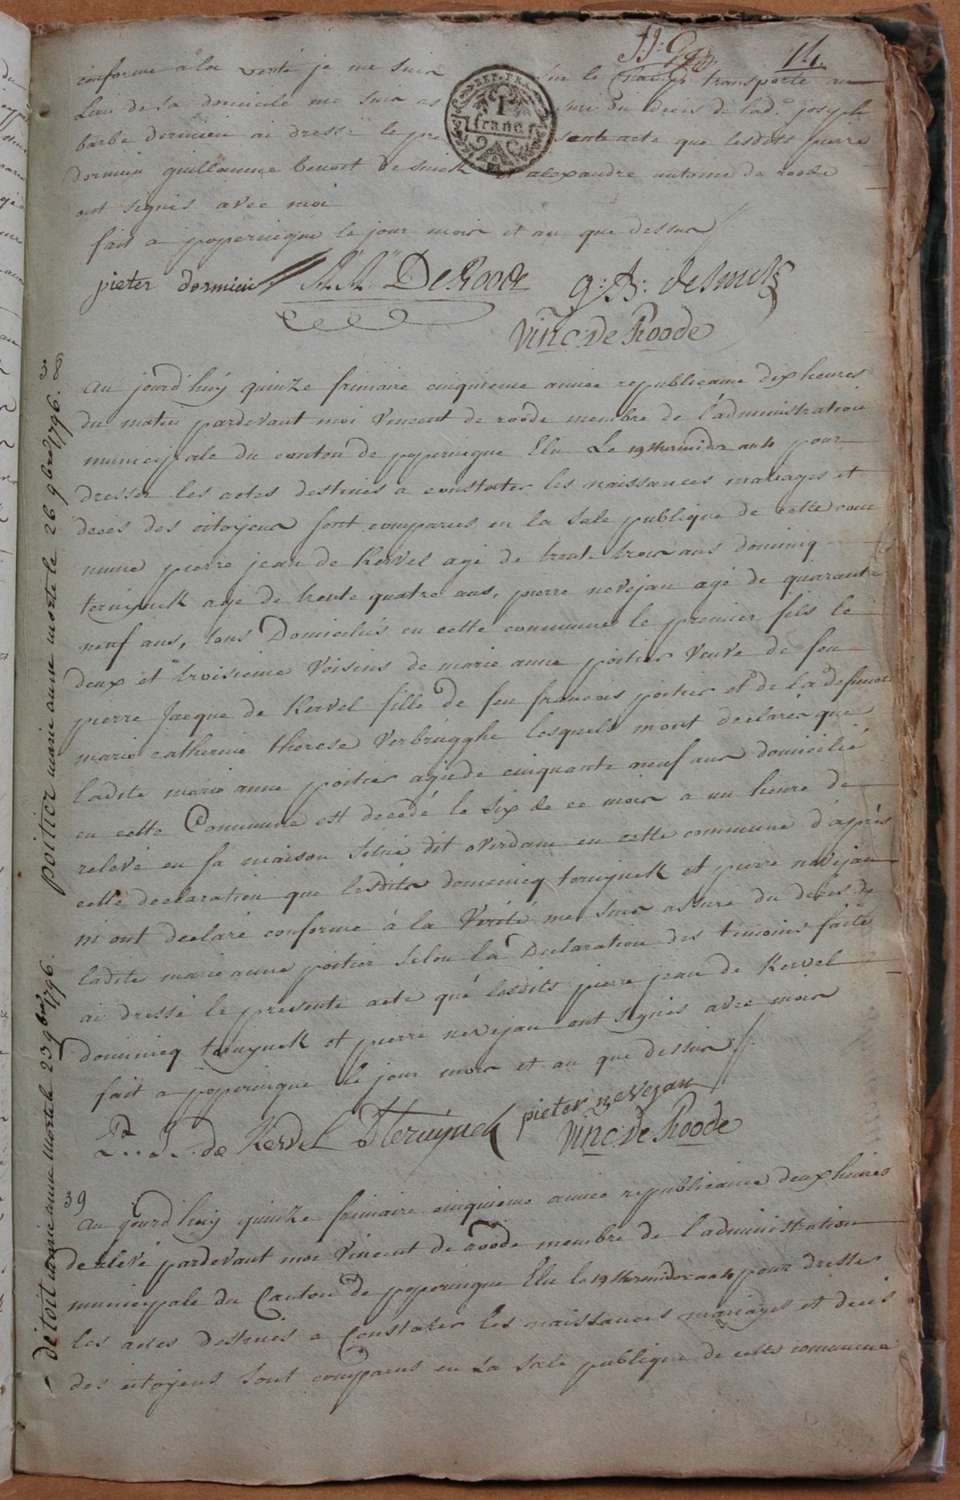 14
conforme a la verité je me suis le transporté au
lieu de sa domicile me suis as du deces de lad. joseph
barbe dormieu ai dressé le pre sente acte que lesdits pierre
dormieu guillaume benoit de smick et alexandre antoine de roode
ont signés avec moi
fait a poperingue le jour mois et an que dessus
REP. FR.
1
franc
pieter dormieu A. A. DeRoode g: B: desmick
Vinc. de Roode
38
au jourd'huy quinze frimaire cinquieme année republicaine dix heures
du matin pardevant moi vincent de roode membre de l'administration
municipale du canton de poperingue Elu Le 19 thermidor an 4 pour
dresser les actes destinés a constater les naissances mariages et
decés des citoyens sont comparus en la sale publique de cette com
mune pierre jean de Kervel agé de trente trois ans dominicq
teruynck age de trente quatre ans, pierre nevejan agé de quarante
neuf ans, tous Domiciliés en cette commune le premier fils le
deux et troisieme voisins de marie anne poitier veuve de feu
pierre Jacque de Kervel fille de feu francois poitier et de la defunte
marie catherine therese verbrugghe lesquels m'ont declarés que
ladite marie anne poitier agée de cinquante neuf ans domicilié
en cette Commune est decedé le six de ce mois a un heure de
relevé en sa maison situé dit overdam en cette commune d'après
cette declaration que lesdits dominicq teruynck et pierre nevejan
m'ont declaré conforme à la Verité me suis assuré du deces de
ladite marie anne poitier selon la Declaration des temoins faite
ai dressé le presente acte que lesdits pierre jean de Kervel
dominicq teruynck et pierre nevejan ont signés avec moi
fait a poperingue le jour mois et an que dessus
P. J. de Kervel D Teruynck pieter nevejan
Vinc. de Roode
39
au jourd'huy quinze frimaire cinquieme année republicaine deux heures
de relevé pardevant moi vincent de roode membre de l'administration
municipale du Canton de poperingue Elu le 19 thermidor an 4 pour dresser
les actes destinés a Constater les naissances mariages et decés
des citoyens sont comparus en la sale publique de cette commune
poitier marie anne morte le 26 9bre 1796.
morte le 23 9bre 1796.